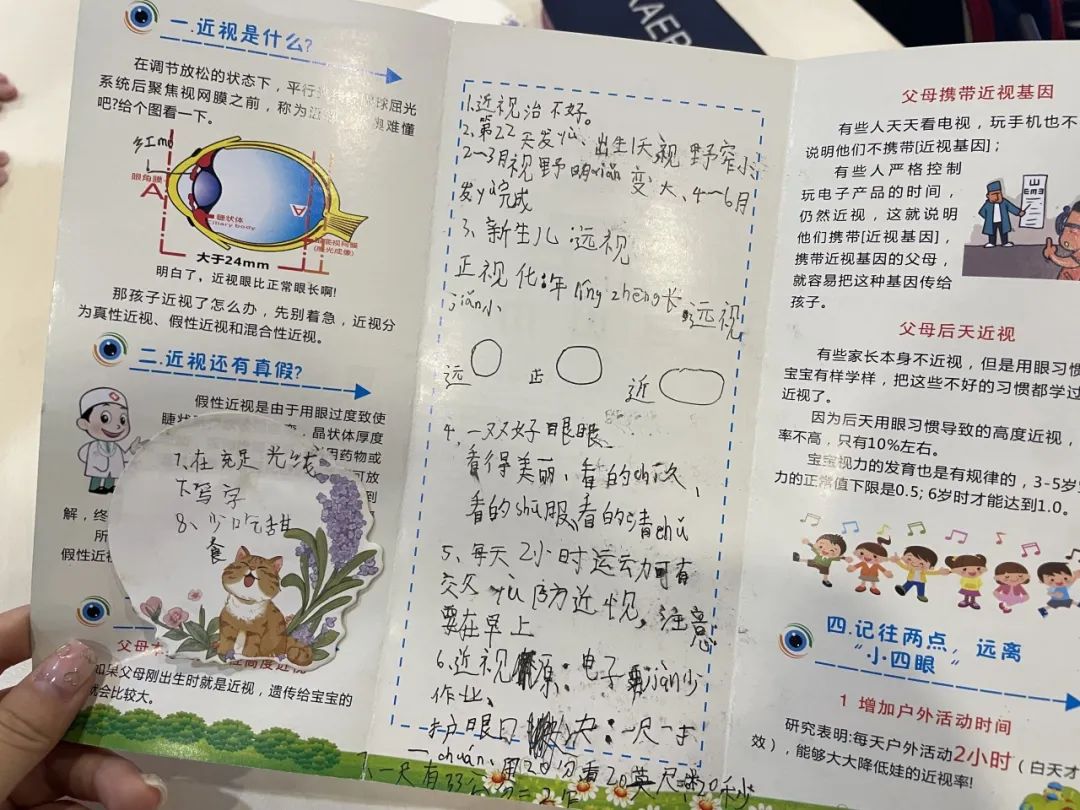 一.近视是什么?
在调节放松的状态下，平行
球屈光
系统后聚焦视网膜之前，称为
难懂
吧?给个图看一下。
眼角膜
A
睫状体
Ciliary body
A
视网膜
(感光成像)
大于24mm
明白了，近视眼比正常眼长啊!
那孩子近视了怎么办，先别着急，近视分
为真性近视、假性近视和混合性近视。
二.近视还有真假?
假性近视是由于用眼过度致使
睫状
晶状体厚度
用药物或
可放
到
解，终
所
假性近
7.在充足光线
下写字
8、少吃甜
食
父母
高度近视
如果父母刚出生时就是近视，遗传给宝宝的
就会比较大。
KAER
1.近视治不好。
2、第22天发yù、出生1天视野窄小、
2—3月视野明xiǎn变大、4—6月
发yù完成
3、新生儿远视
正视化:年líng zhěng长远视
jiǎn小
远 正 近
4、一双好眼眼
看得美丽、看的chí久、
看的shū服、看的清chǔ
5、每天2小时运动可有
交欠 yù防近视，注意
要在早上
6、近视原:电子jiǎn少
作业、
护眼口决:一尺一寸
一chuán、用20分看20英尺20秒
一尺有33
父母携带近视基因
有些人天天看电视，玩手机也不
说明他们不携带[近视基因]；
有些人严格控制
玩电子产品的时间，
仍然近视，这就说明
他们携带[近视基因]，
携带近视基因的父母，
就容易把这种基因传给
孩子。
父母后天近视
有些家长本身不近视，但是用眼习惯
宝宝有样学样，把这些不好的习惯都学过
近视了。
因为后天用眼习惯导致的高度近视，
率不高，只有10%左右。
宝宝视力的发育也是有规律的，3-5岁
力的正常值下限是0.5; 6岁时才能达到1.0。
四.记住两点，远离
“小四眼 ”
1 增加户外活动时间
研究表明:每天户外活动2小时（白天才
效)，能够大大降低娃的近视率!